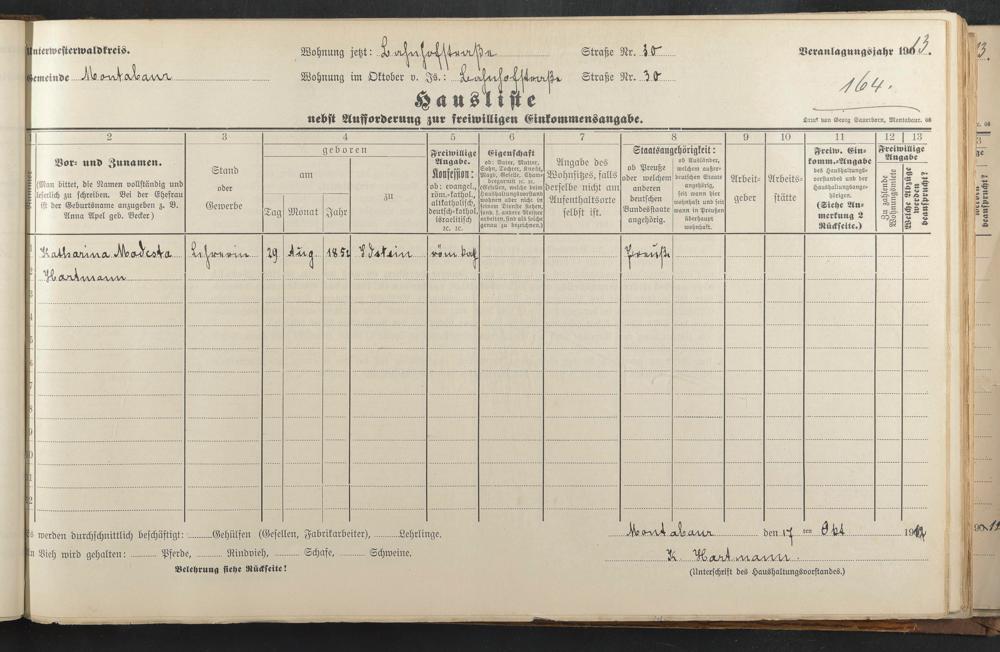 Unterwesterwaldkreis.
Wohnung jetzt: Bahnhofstraße Straße Nr. 30
Veranlagungsjahr 1913.
Gemeinde Montabaur
Wohnung im Oktober v. Js.: Bahnhofstraße Straße Nr. 30
164.
Hausliste
nebst Aufforderung zur freiwilligen Einkommensangabe.
Druck von Georg Sauerborn, Montabaur. 08
1 2 3 4 5 6 7 8 9 10 11 12 13
Vor- und Zunamen.
(Man bittet, die Namen vollständig und
leserlich zu schreiben. Bei der Ehefrau
ist der Geburtsname anzugeben z. B.
Anna Apel geb. Becker)
Stand
oder
Gewerbe
geboren
am
Tag Monat Jahr
zu
Freiwillige
Angabe.
Konfession:
ob: evangel.,
röm.-kathol.,
altkatholisch,
deutsch-kathol.,
israelitisch
ꝛc. ꝛc.
Eigenschaft
ob: Vater, Mutter,
Sohn, Tochter, Knecht,
Magd, Geselle, Cham-
bregarnist ꝛc. ꝛc.
(Gehülfen, welche beim
Haushaltungsvorstand
wohnen oder nicht in
seinem Dienste stehen,
sond. f. andere Meister
arbeiten, sind als solche
genau zu bezeichnen.)
Angabe des
Wohnsitzes, falls
derselbe nicht am
Aufenthaltsorte
selbst ist.
Staatsangehörigkeit:
ob Preuße
oder welchem
anderen
deutschen
Bundesstaate
angehörig.
ob Ausländer,
welchem außer-
deutschen Staate
angehörig,
seit wann hier
wohnhaft und seit
wann in Preußen
überhaupt
wohnhaft.
Arbeit-
geber
Arbeits-
stätte
Freiw. Ein-
komm.-Angabe
des Haushaltungs-
vorstandes und der
Haushaltungsange-
hörigen.
(Siehe An-
merkung 2
Rückseite.)
Freiwillige
Angabe
Zu zahlende
Wohnungsmiete
Welche Abzüge
werden
beansprucht?
1 Katharina Modesta Lehrerin 29 Aug 1852 Idstein röm kath Preuß
2 Hartmann
3
4
5
6
7
8
9
10
11
12
Es werden durchschnittlich beschäftigt: Gehülfen (Gesellen, Fabrikarbeiter), Lehrlinge.
Montabaur den 17ten Okt 1912
An Vieh wird gehalten: Pferde, Rindvieh, Schafe, Schweine.
K. Hartmann.
Belehrung siehe Rückseite!
(Unterschrift des Haushaltungsvorstandes.)